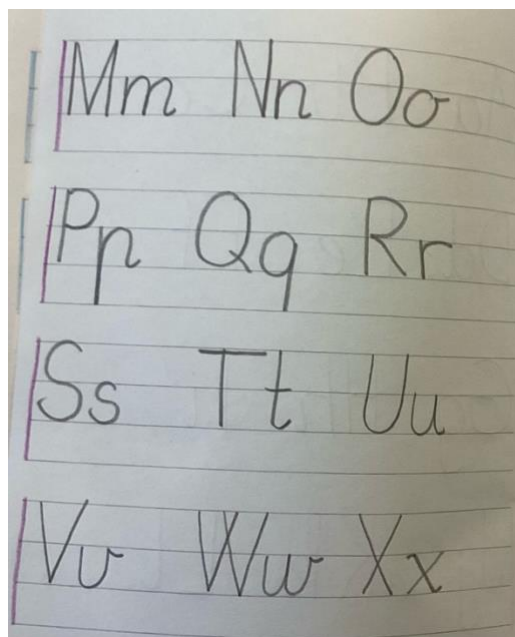 Mm Nn Oo
Pp Qq Rr
Ss Tt Uu
Vv Ww Xx